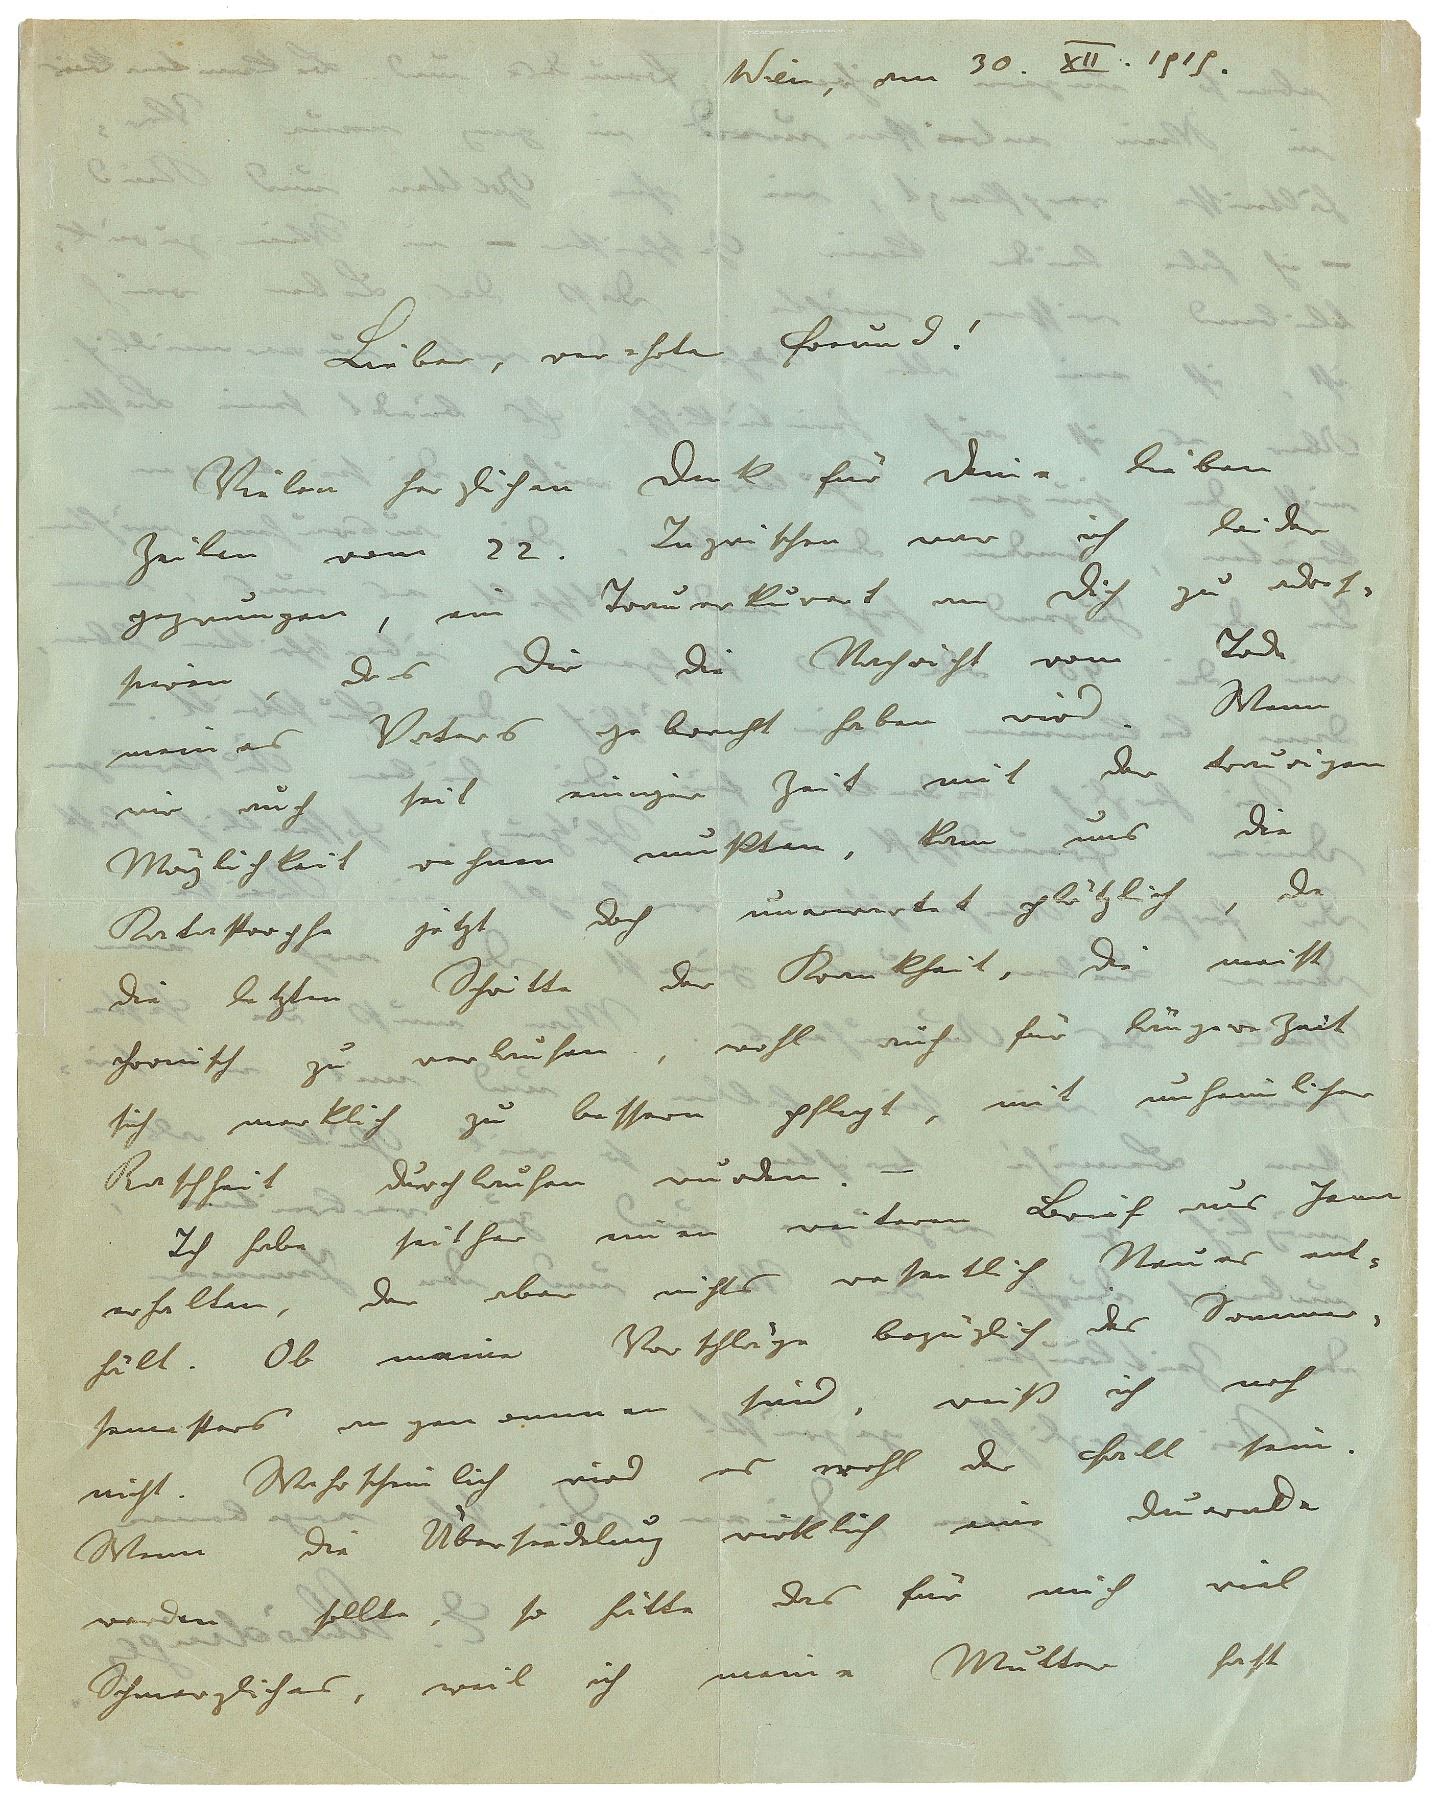 Wien, am 30. XII. 1919.
Lieber, verehrter Freund!
Vielen herzlichen Dank für Deine lieben
Zeilen vom 22. Inzwischen war ich leider
gezwungen, ein Trauerkuvert an Dich zu adres-
sieren, das Dir die Nachricht vom Tode
meines Vaters gebracht haben wird. Wenn
wir auch seit einiger Zeit mit der traurigen
Möglichkeit rechnen mußten, kam uns die
Katastrophe jetzt doch unerwartet plötzlich, da
die letzten Schritte der Krankheit, die meist
chronisch zu verlaufen, wohl auch für längere Zeit
sich merklich zu bessern pflegt, mit unheimlicher
Raschheit durchlaufen wurden. —
Ich habe seither einen weiteren Brief aus Jena
erhalten, der aber nichts wesentlich Neues ent-
hält. Ob meine Vorschläge bezüglich des Sommer-
semesters angenommen sind, weiß ich noch
nicht. Wahrscheinlich wird es wohl der Fall sein.
Wenn die Übersiedelung wirklich eine dauernde
werden sollte, so hätte das für mich viel
Schmerzliches, weil ich meine Mutter fast